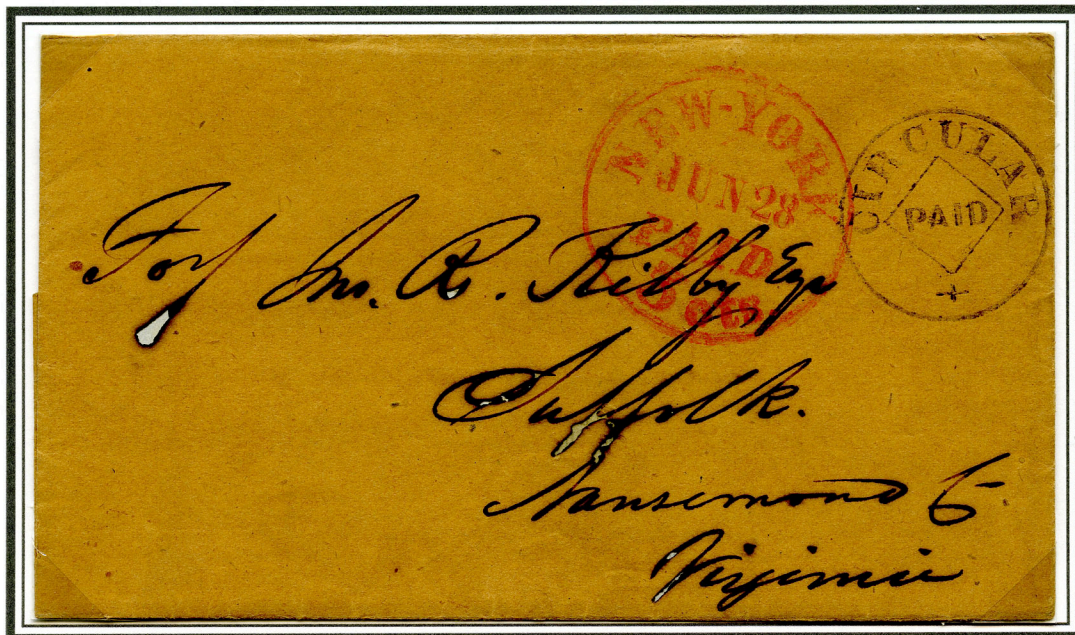 NEW-YORK
JUN 28
PAID
3 cts
CIRCULAR
PAID
For Jno. R. Kilby Esqr
Suffolk.
Nansemond Co
Virginia